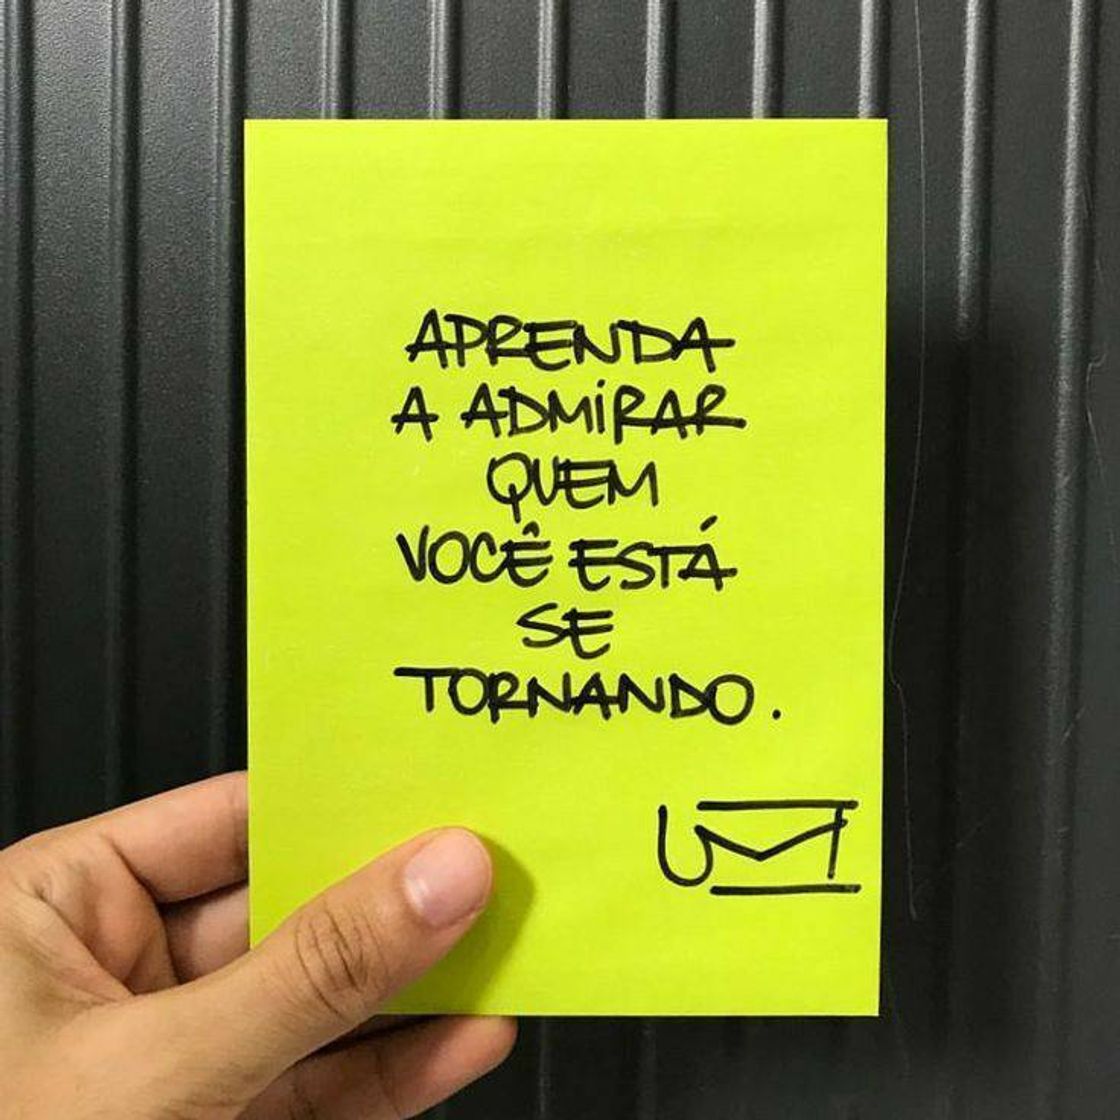 APRENDA
A ADMIRAR
QUEM
VOCÊ ESTÁ
SE
TORNANDO.
UM